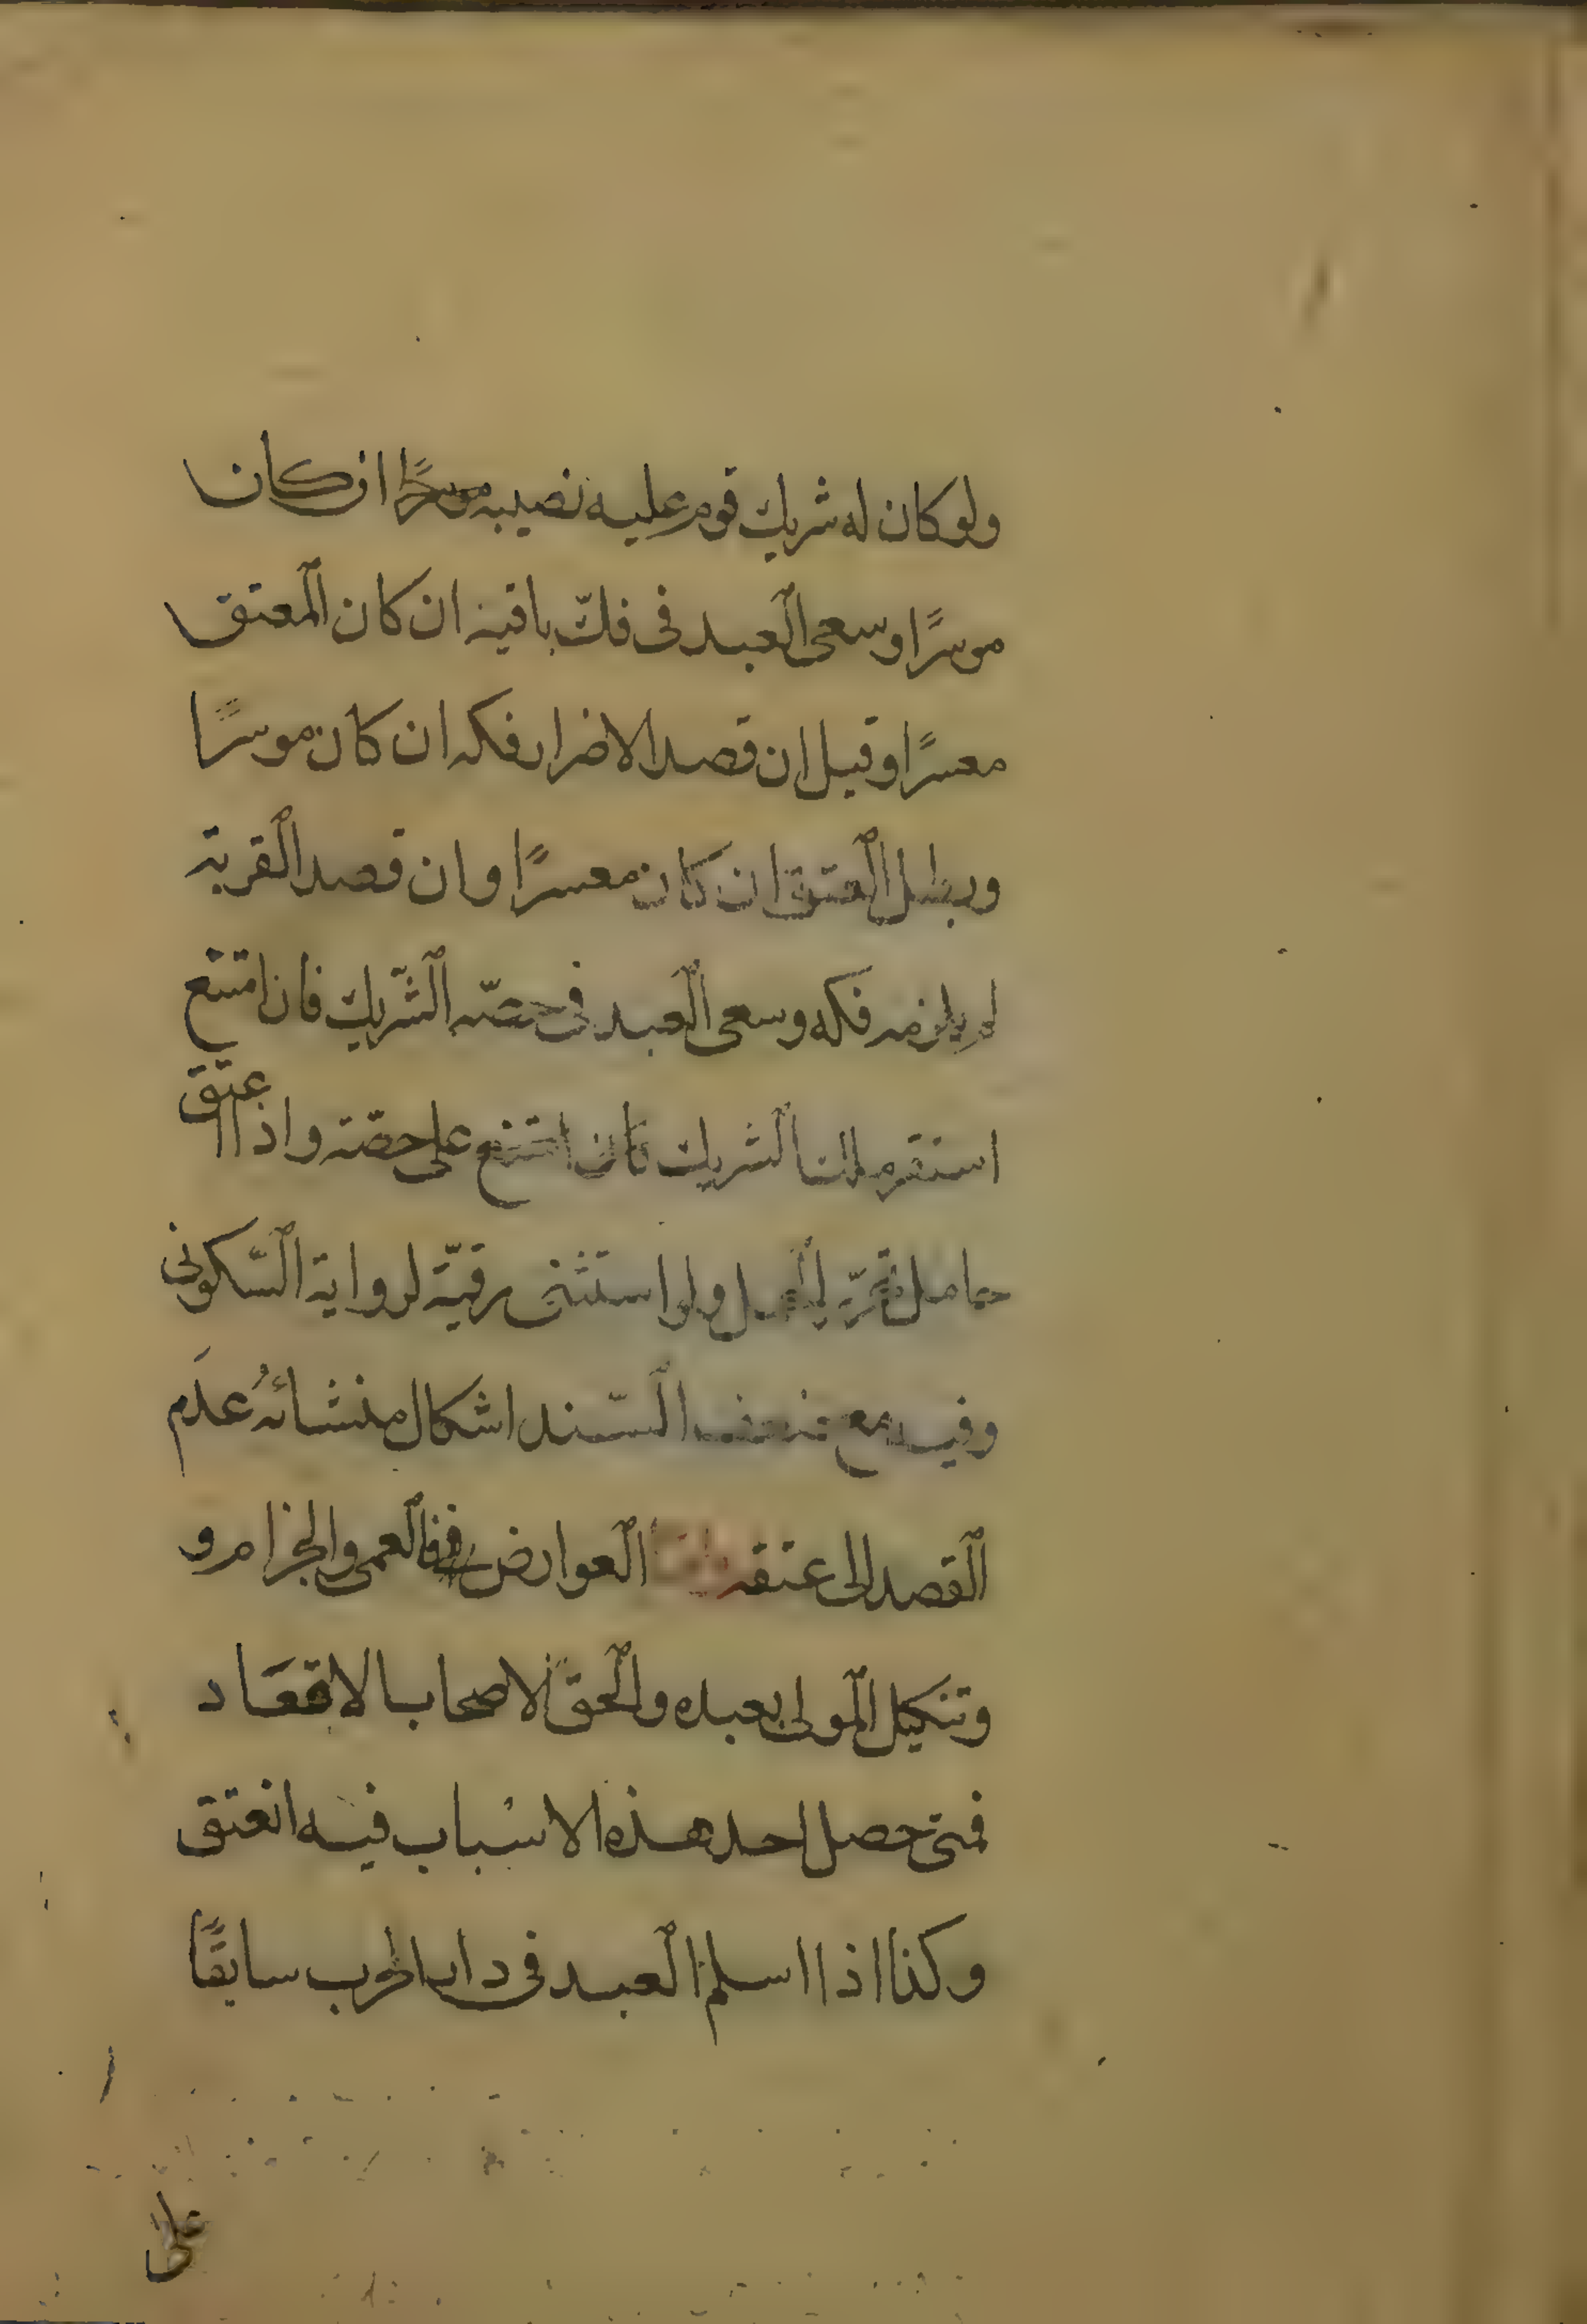 ولو كان له شريك قوم عليه نصيبه موسرًا ان كان
موسرًا وسعى العبد فى فكّ باقيه ان كان المعتق
معسرًا وقيل ان قصد الاضرار فكه ان كان موسرًا
وبطل العتق ان كان معسرًا وان قصد القربة
لم يلزمه فكه وسعى العبد فى حصّه الشّريك فان امتنع
استقر ملك الشريك فان امتنع على حصّته واذا اعتق
حامل تحرّر الحمل ولو استثنى رقيّة لرواية السّكونى
وفيه مع ضعف السّند اشكال منشائه عدَم
القصد الى عتقه وامّا العوارض فالعمى والجزام و
وتنكيل المولى بعبده والحق الاصحاب الاقعَاد
فمتى حصل احد هذه الاسباب فيه انعتق
وكذا اذا اسلم العبد فى دار الحرب سابقًا
على